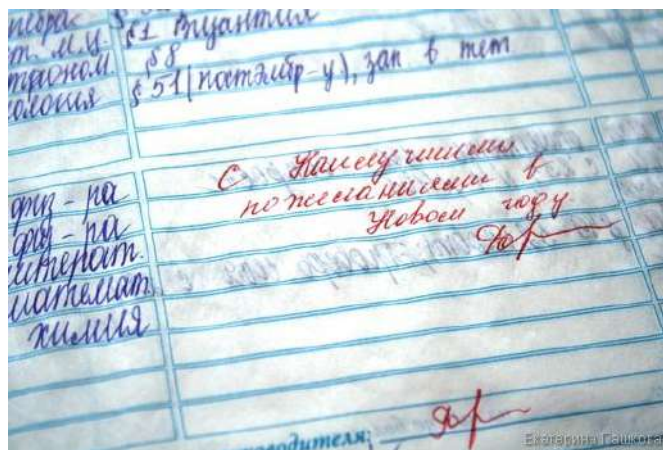 §1 Византия
§8
§51 (постэмбр-у), зап в тет
С Наилучшими
пожеланиями в
Новом году
физ-ра
физ-ра
литерат.
математ.
химия
Екатерина Гашкова